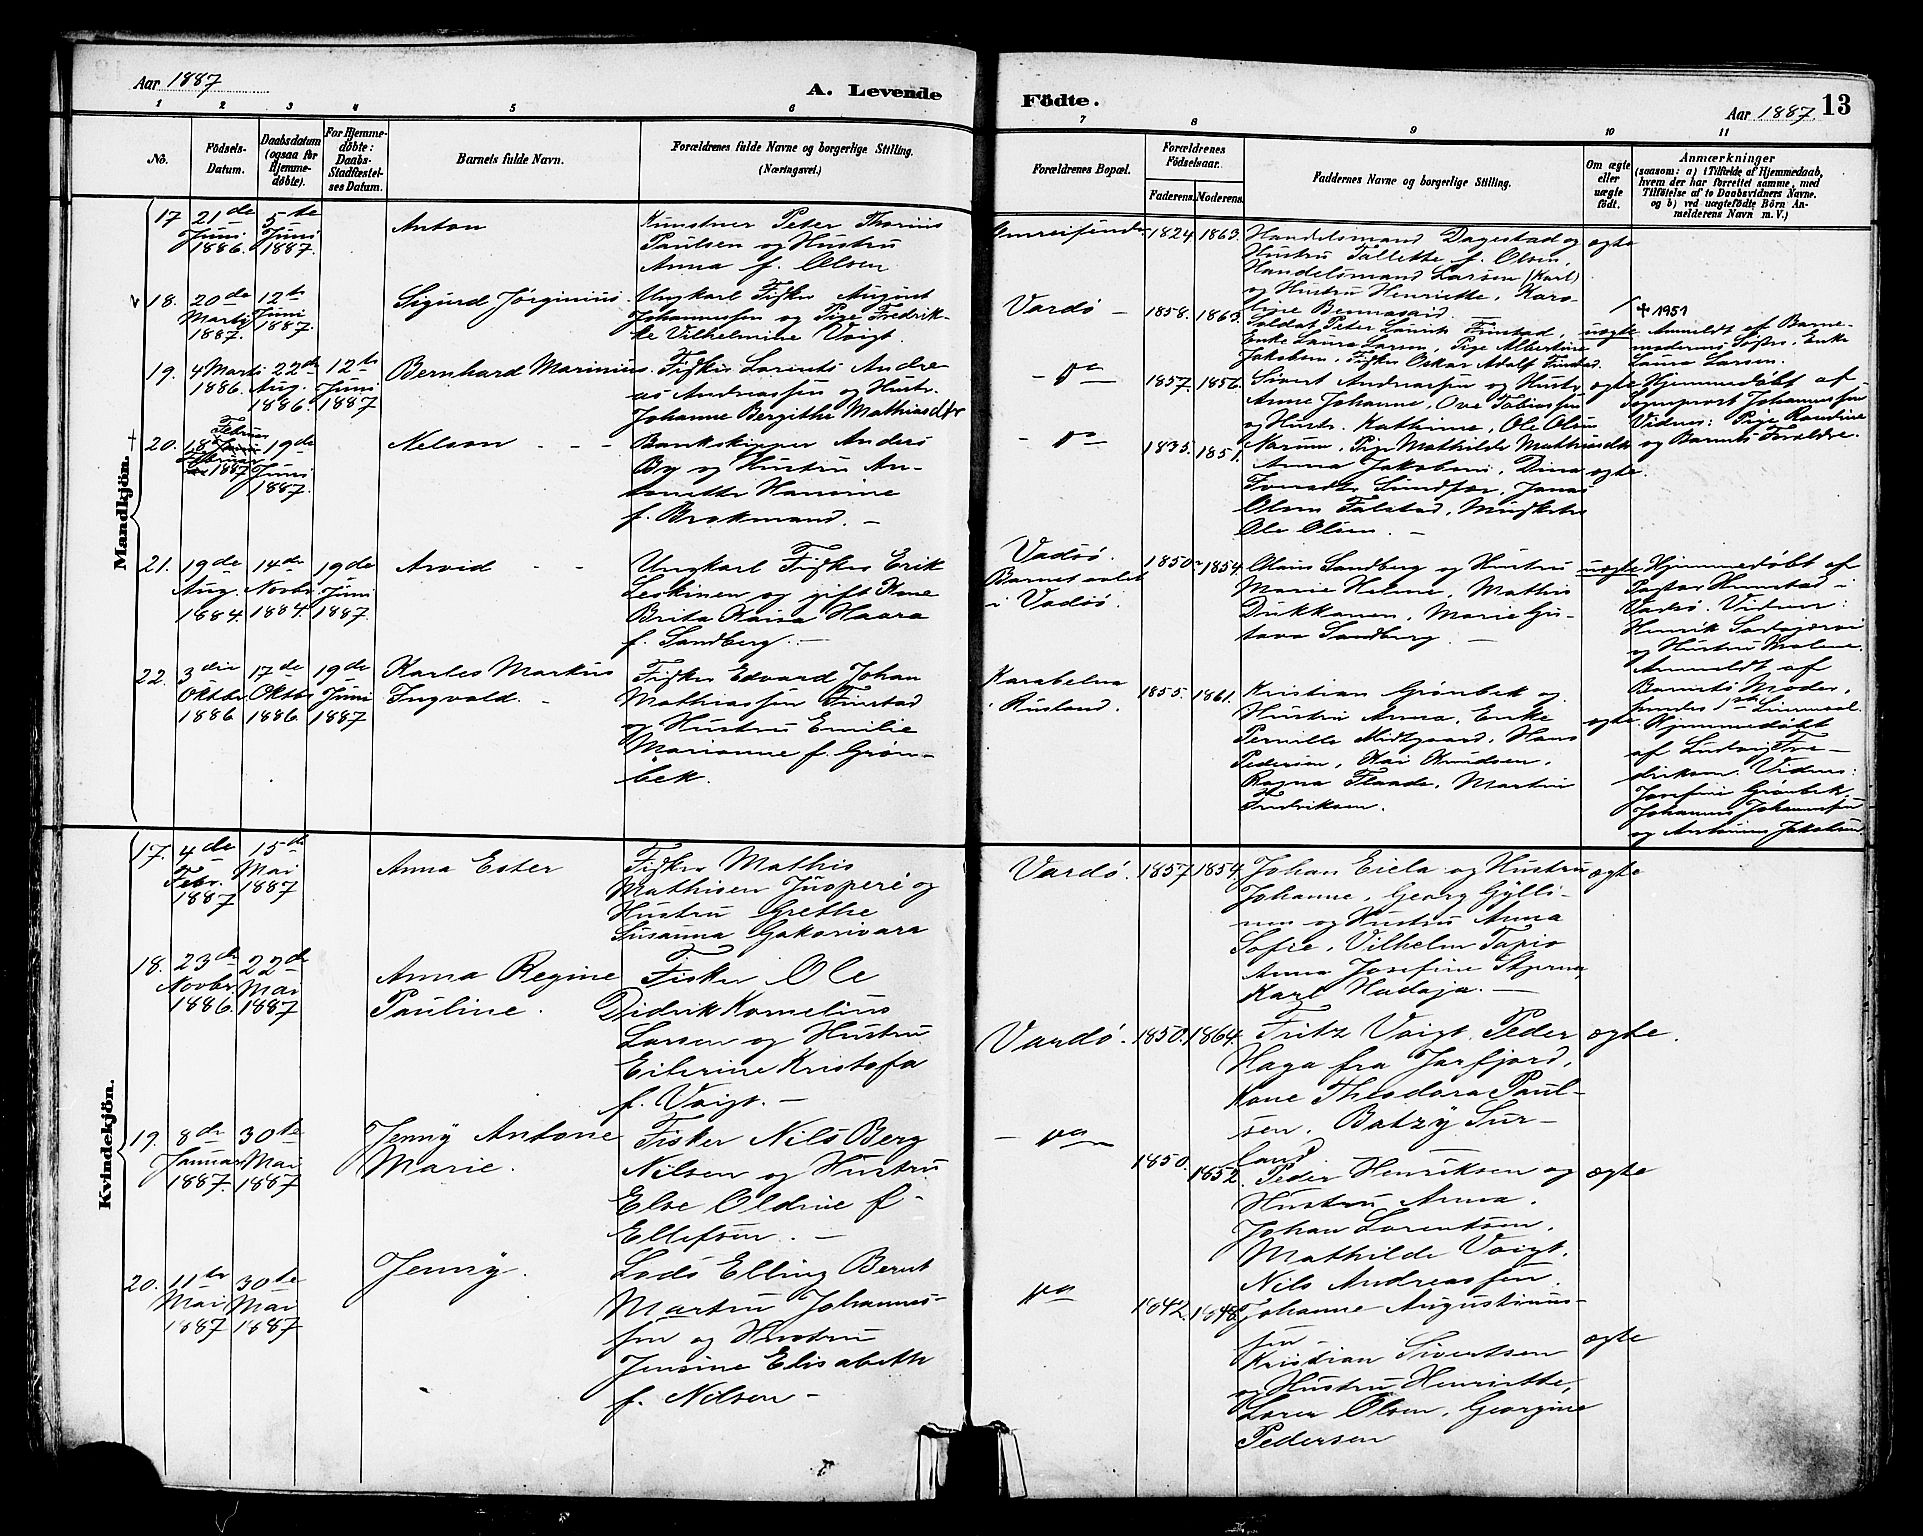 Aar 1887
A. Levende
Födte.
Aar 1887. 13
1 2 3 4 5 6 7 8 9 10 11
No.
Födsels-
Datum.
Daabsdatum
(ogsaa for
Hjemme-
døbte).
For Hjemme-
døbte:
Daabs-
Stadfæstel-
ses Datum.
Barnets fulde Navn.
Forældrenes fulde Navne og borgerlige Stilling.
(Næringsvei.)
Forældrenes Bopæl.
Forældrenes
Födselsaar.
Faderens. Moderens.
Faddernes Navne og borgerlige Stilling.
Om ægte
eller
uægte
födt.
Anmærkninger
(saasom: a) i Tilfælde af Hjemmedaab,
hvem der har forrettet samme, med
Tilföielse af to Daabsvidners Navne.
og b) ved uægtefödte Börn An-
melderens Navn m. V.)
Mandkjön.
17. 21de Juni 1886. 5te Juni 1887.
Anton
Peter
Paulsen og Hustru
Anna f. Olsen
1824 1863.
Handelsmand Dagestad og
Hustru f. Olsen,
Handelsmand Larsen (Karl)
og Hustru Henriette,
ægte
18. 20de Marts 1887. 12te Juni 1887.
Sigurd Jørginius.
Ungkarl Fisker August
Johannessen og Pige Fredrik-
ke Vilhelmine Voigt.
Vardø 1858. 1863.
Soldat Peter Finstad,
Enke Laura Larsen, Pige Albertine
Jakobsen, Fisker Oskar Adolf Finstad.
uægte
✝ 1951
Anmeldt af Barne-
moderens Søster, Enke
Laura Larsen.
19. 4 Marts 1886. 22de Aug. 1886. 12te Juni 1887
Bernhard Marinius.
Fisker Lorents Andre
as Andreassen og Hustr.
Johanne Bergithe Mathiasdtr
1857. 1856.
Sivert Andreassen og Hustr.
Anne Johanne, Ove Tobiassen
og Hustr. Kathrine, Ole Olsen
ægte
Hjemmedøbt af
Johannessen
Vidner: Pige
og Barnets Forældre.
20. Februar 1887 19de Juni 1887.
Nelson
Bankskipper Anders
By og Hustru An-
tonette Hansine
f. Brokmand.
1835. 1851.
Pige Mathilde Mathiasdtr
Anna Jakobsen, Dina
Jonas
Olsen Falstad,
Ole Olsen.
ægte.
21. 19de Aug. 1884. 14de Novbr. 1884. 19de Juni 1887.
Arvid
Ungkarl Fisker Erik
Leskinen og gift Kone
Brita Kaisa Haara
f. Sandberg.
Vadsø.
Barnet avlet
i Vadsø.
1850 1854.
Olaus Sandberg og Hustru
Marie Helene, Mathis
Dukkanen, Marie Gus-
tava Sandberg.
uægte
Hjemmedøbt af
Pastor
Vadsø. Vidner:
Henrik
og Hustru Malene.
Anmeldt af
Barnets Moder,
22. 3die Oktbr. 1886 17de Oktbr. 1886. 19de Juni 1887
Karles Markus
Ingvald.
Fisker Edvard Johan
Mathiassen Finstad
og Hustru Emilie
Marianne f. Grøn-
bek.
Karabelna
Rusland.
1855. 1861.
Kristian Grønbek og
Hustru Anna, Enke
Pernille Midtgaard, Hans
Pedersen, Kai Knudsen,
Ragna Flaade, Martin
Fredriksen.
ægte.
Hjemmedøbt
af Ludvig Fre-
driksen. Vidner:
Josefine Grønbek,
Johannes Johannessen
og Jakobsen
Kvindekjön.
17. 4de Febr. 1887 15de Mai 1887
Anna Ester
Fisker Mathis
Mathisen Juoperi og
Hustru Grethe
Susanna Gakonvara
Vardø. 1857 1854.
Johan Eiela og Hustru
Johanne, Georg Gylli-
nen og Hustru Anna
Sofie, Vilhelm Tapio
Anna Josefine Stjerna,
Karl Hudaja.
ægte
18. 23de Novbr. 1886. 22de Mai 1887
Anna Regine
Pauline.
Fisker Ole
Didrik Kornelius
Larsen og Hustru
Eilerine Kristofa
f. Voigt.
Vardø. 1850. 1864.
Fritz Voigt, Peder
Haga fra Jarfjord,
Kone Theodora Paul-
sen, Batzy Sur-
land
ægte.
19. 8de Januar 1887. 30te Mai 1887
Jenny Antone
Marie.
Fisker Nils Berg
Nilsen og Hustru
Else Oldine f.
Ellefsen.
1850. 1852.
Peder Henriksen og
Hustru Anna,
Johan Lorentsen,
Mathilde Voigt,
Nils Andreassen.
ægte
20. 11te Mai 1887 30te Mai 1887
Jenny.
Lods Elling Bernt
Martin Johannes-
sen og Hustru
Jensine Elisabeth
f. Nilsen
1842. 1848.
Johanne Augustinus-
sen
Kristian Sivertsen
og Hustru Henriette,
Loren Olsen, Georgine
Pedersen
ægte